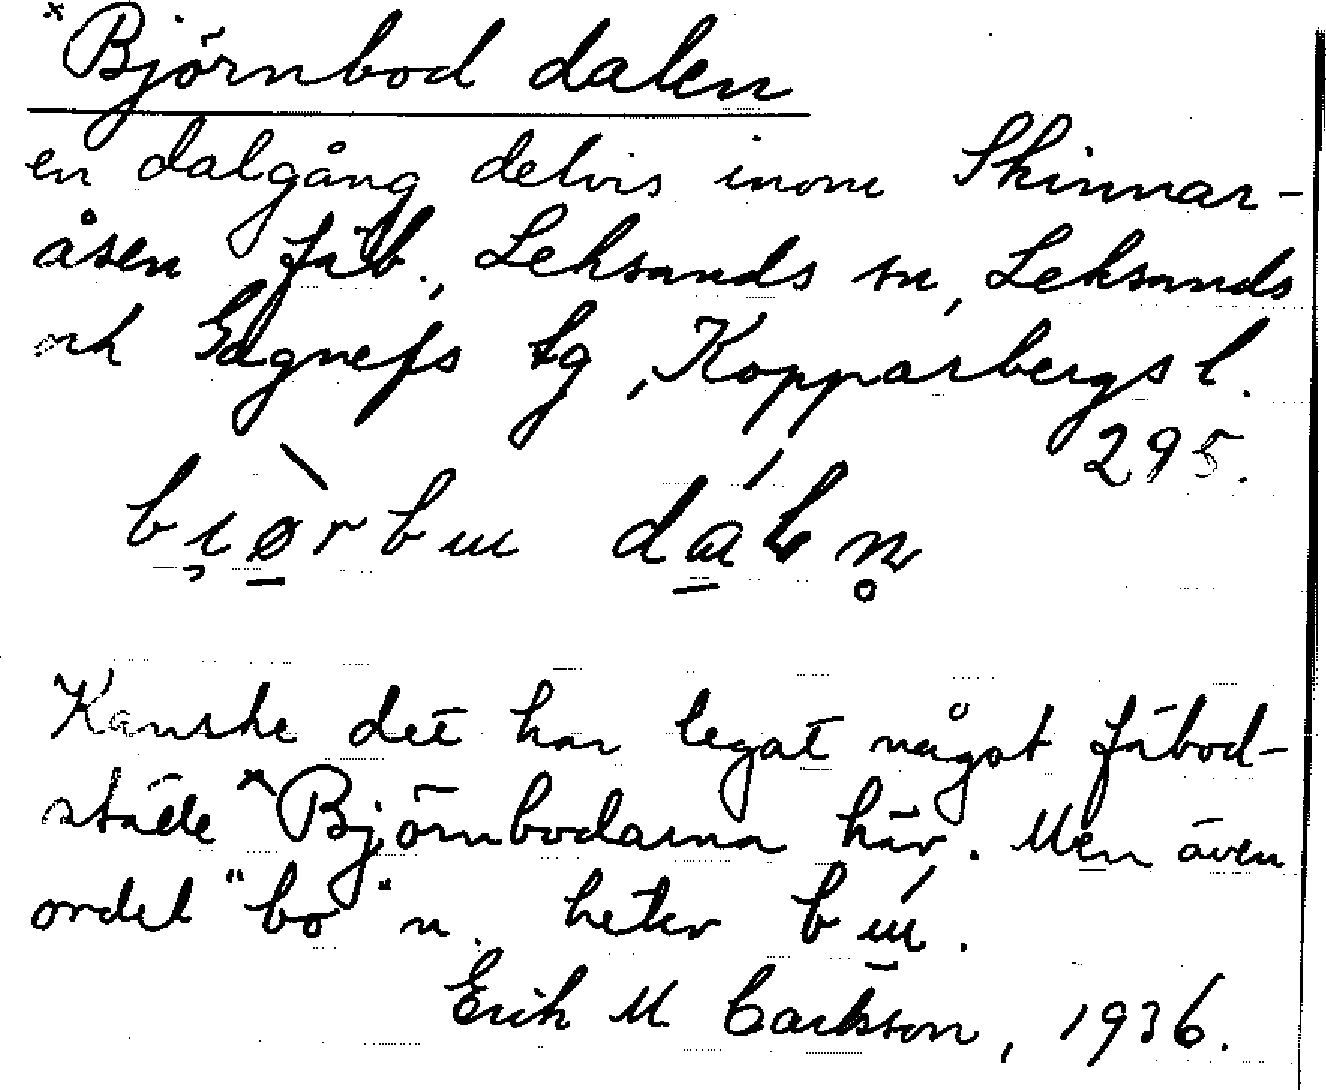 *Björnbod dalen
en dalgång delvis inom Skinnar-
åsen fäb., Leksands sn, Leksands
och Gagnefs tg, Kopparbergs l.
295.
Kanske det har legat något fäbod-
ställe *Björnbodarna här. Men även
ordet "bo" n. heter bɯ́.
Erik M Carlsson, 1936.